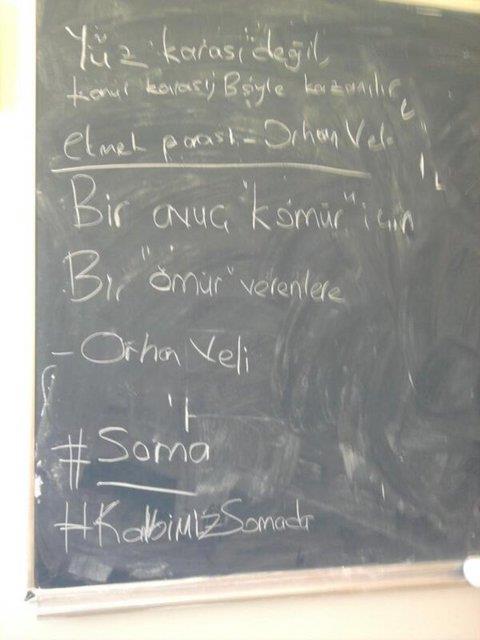 Yüz karası değil,
kömür karası, Böyle kazanılır
ekmek parası - Orhan Veli
Bir avuç "kömür" için
Bir "ömür" verenlere
- Orhan Veli
#Soma
#KalbimizSomada